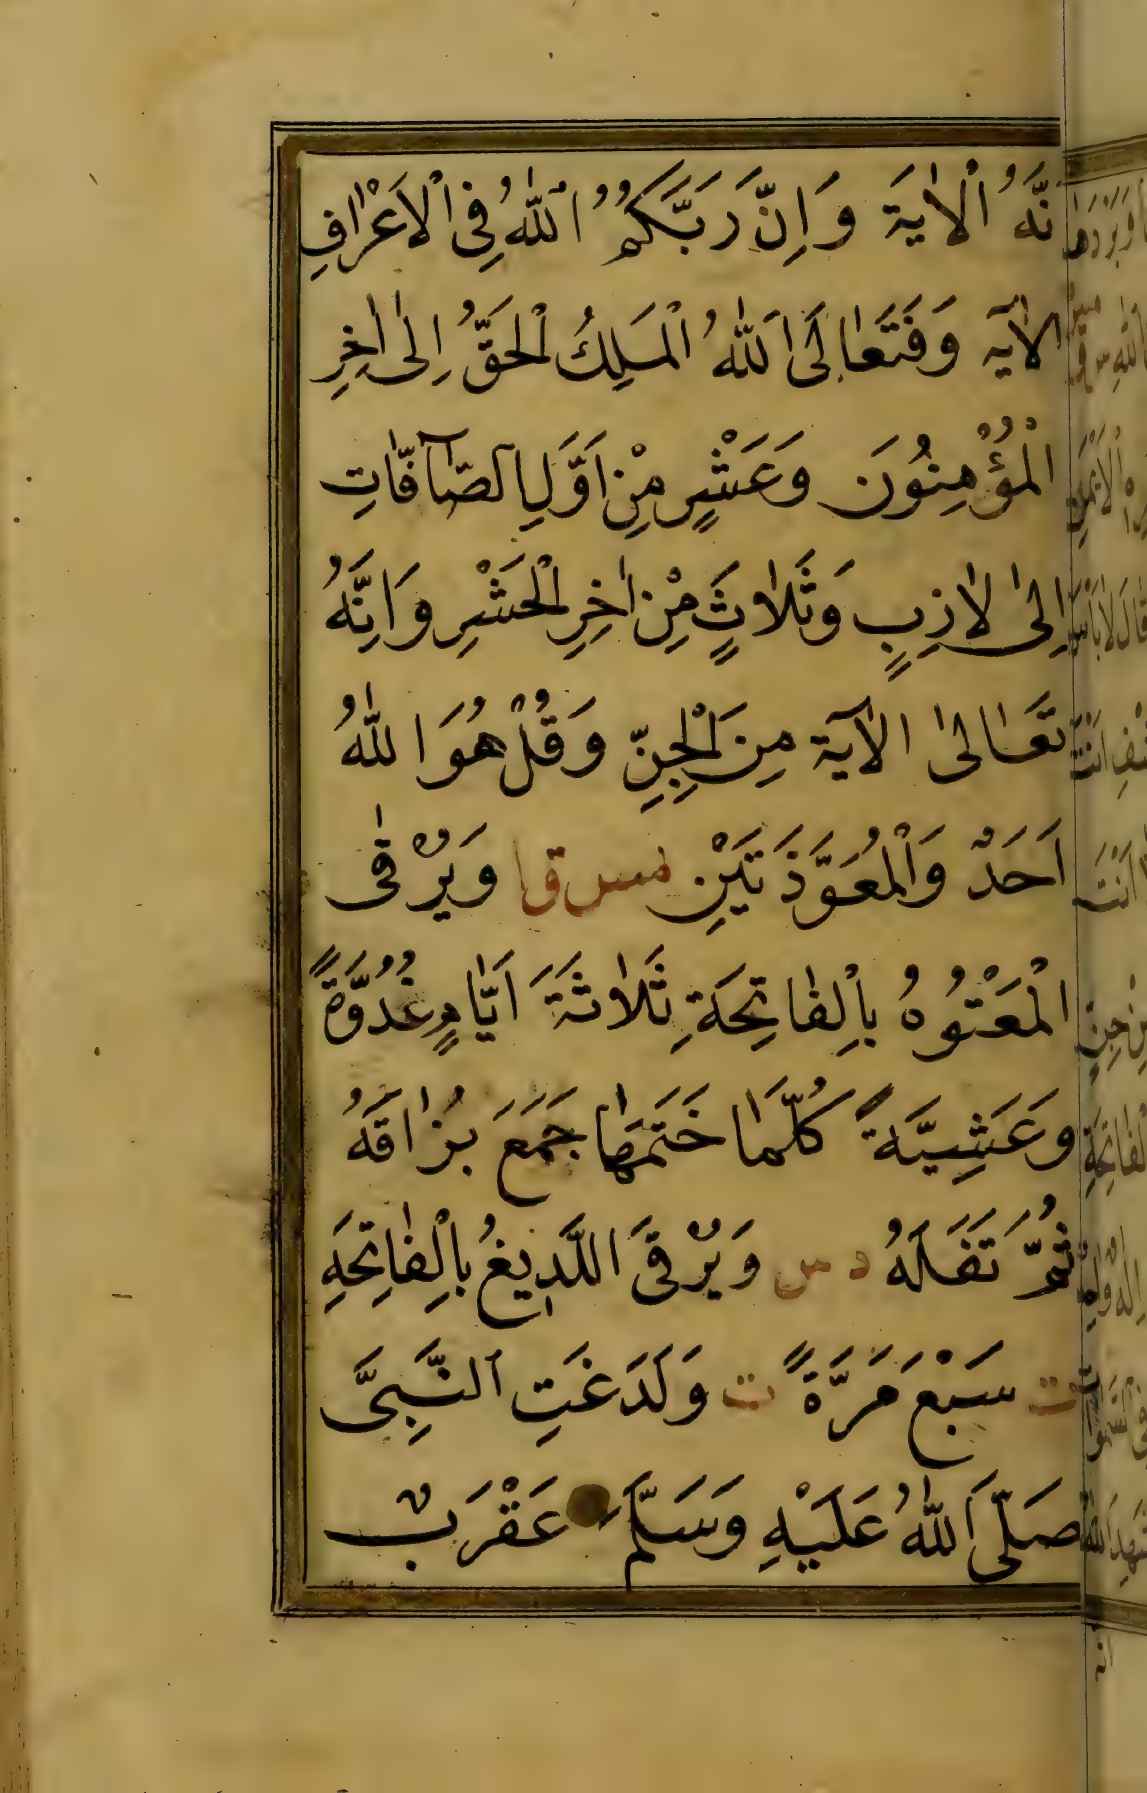 نَّهُ الْاٰيَةَ وَاِنَّ رَبَّكُمُ اللّٰهُ فِى الْاَعْرَافِ
الاٰيه وَفَتَعَالَى اللّٰهُ الْمَلِكُ الْحَقُّ اِلٰى اٰخِرِ
الْمُؤْمِنُونَ وَعَشْرٍ مِنْ اَوَّلِ الصّآفَّاتِ
اِلىٰ لاٰزِبٍ وَثَلاٰثٍ مِنْ اٰخِرِ الْحَشْرِ وَاَنَّهُ
تَعَالىٰ الاٰية مِنَ الْجِنِّ وَقُلْ هُوَ اللّٰهُ
اَحَدٌ وَالْمُعَوَّذَتَيْنِ مس ق ا وَيَرْقٰى
الْمَعْتُوهُ بِالْفَاتِحَةِ ثَلاٰثَةَ اَيَّامٍ غُدُوَّةً
وَعَشِيَّةً كُلَّمَا خَتَمَهَا جَمَعَ بُزَاقَهُ
ثُمَّ تَفَلَهُ د س وَيَرْقَى اللَّدِيغُ بِالْفَاتِحَةِ
ت سَبْعَ مَرَّةً ت وَلَدَغَتِ النَّبِىَّ
صَلَّى اللّٰهُ عَلَيْهِ وَسَلَّمَ عَقْرَبٌ